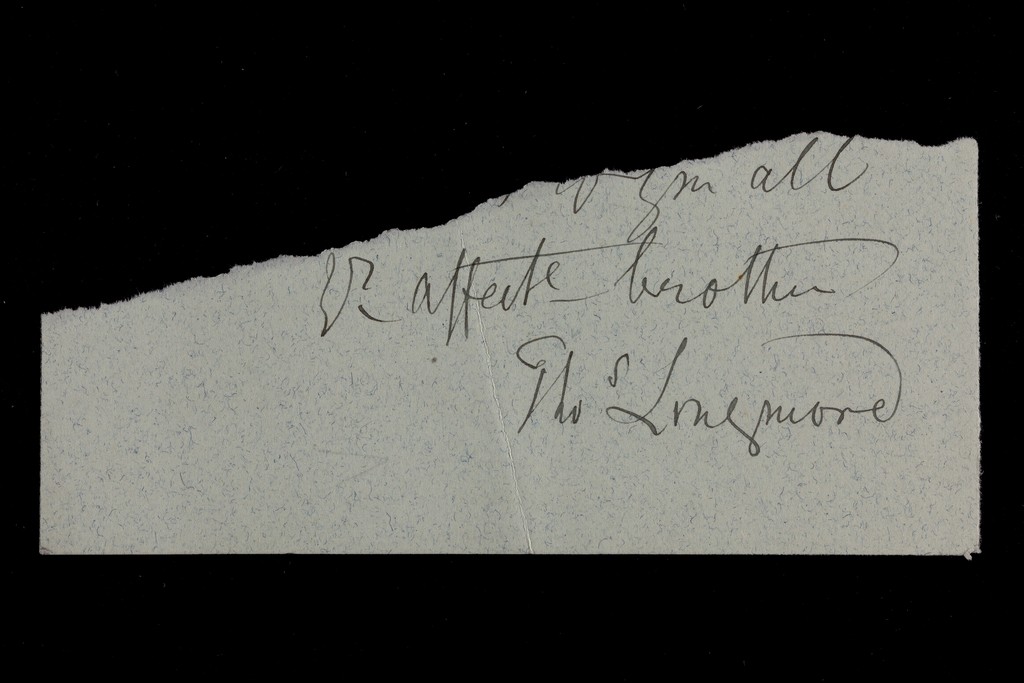 all
Yr affecte brother
Thos Longmore